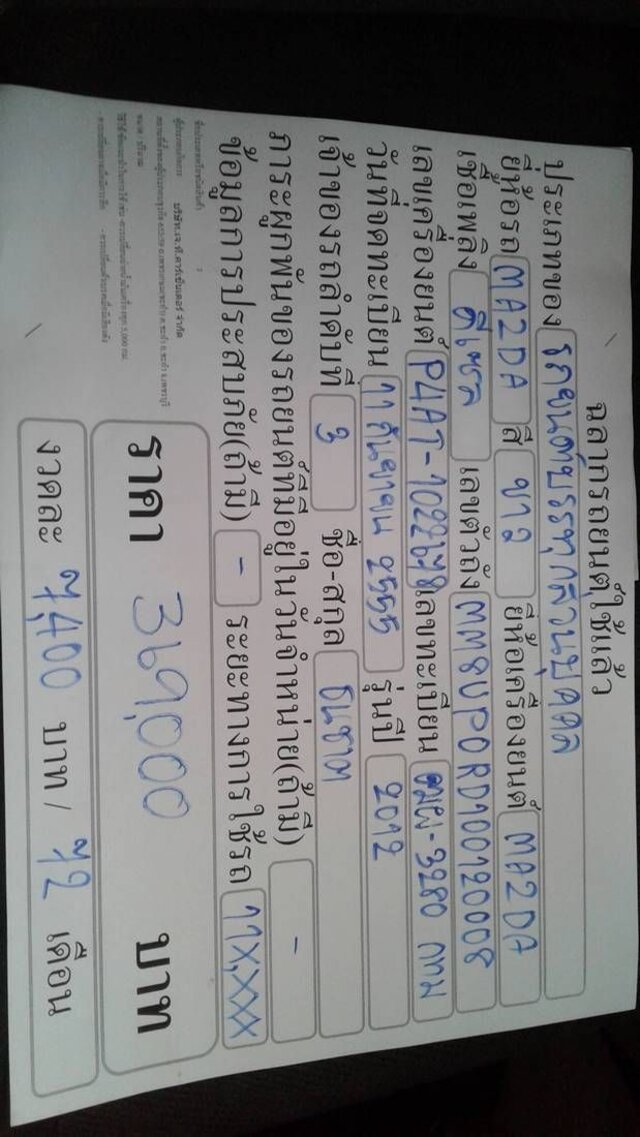 ฉลากรถยนต์ใช้แล้ว
ประเภทของ รถยนต์บรรทุกส่วนบุคคล
ยี่ห้อรถ MAZDA สี ขาว ยี่ห้อเครื่องยนต์ MAZDA
เชื้อเพลิง ดีเซล เลขตัวถัง MM8UP0RD100120008
เลขเครื่องยนต์ P4AT-1022678 เลขทะเบียน 3280 กทม
วันที่จดทะเบียน 11 กันยายน 2555 รุ่นปี 2012
เจ้าของรถลำดับที่ 3 ชื่อ-สกุล ธนชาต
ภาระผูกพันของรถยนต์ที่มีอยู่ในวันจำหน่าย(ถ้ามี) -
ข้อมูลการประสบภัย(ถ้ามี) - ระยะทางการใช้รถ 11X,XXX
บริษัท เจ.ที.คาร์เซ็นเตอร์ จำกัด
ราคา 369,000 บาท
งวดละ 7,400 บาท/ 72 เดือน